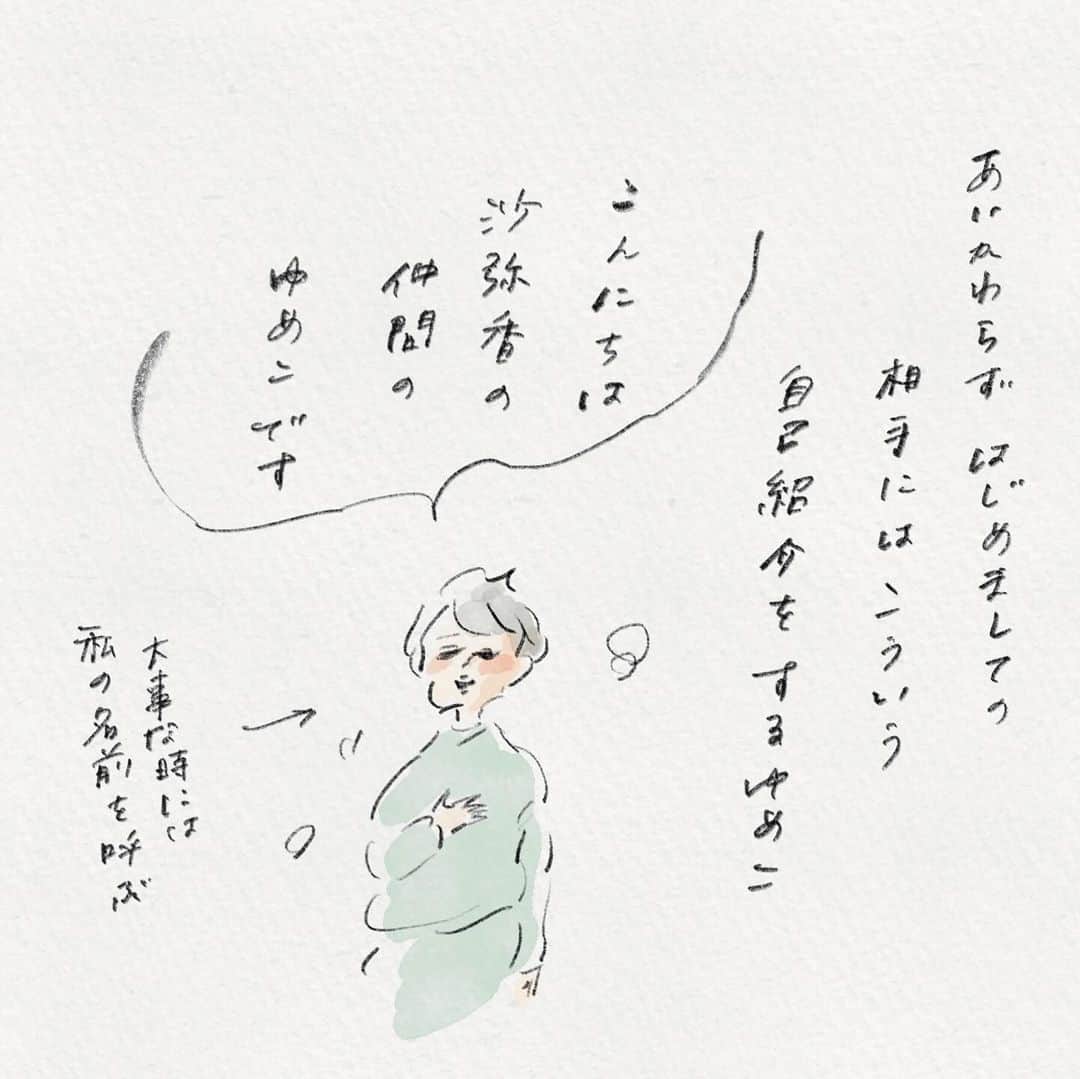 あいかわらず はじめましての
相手には こういう
自己紹介を するゆめこ
こんにちは
沙弥香の
仲間の
ゆめこです
大事な時には
私の名前を呼ぶ